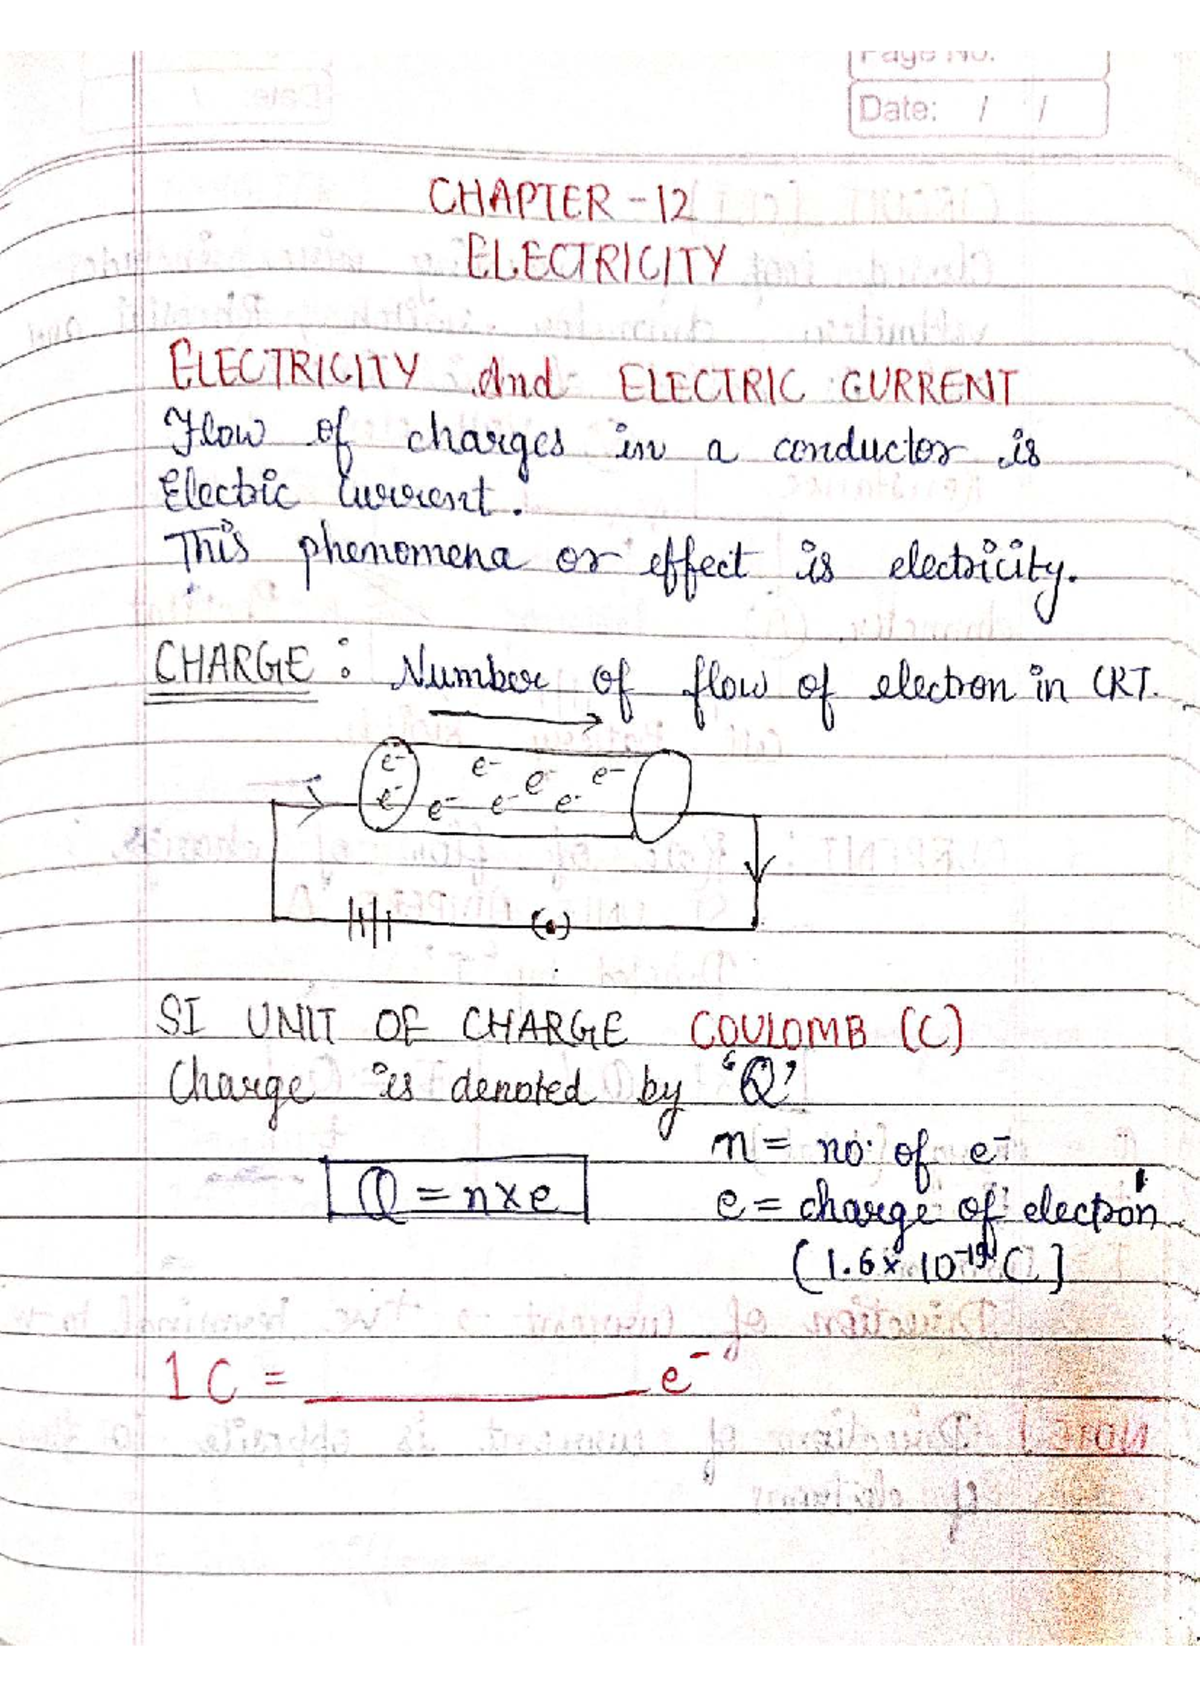 Page No.
Date: / /
CHAPTER - 12
ELECTRICITY
ELECTRICITY And ELECTRIC CURRENT
Flow of charges in a conductor is
Electric Current.
This phenomena or effect is electricity.
CHARGE : Number of flow of electron in CRT.
e⁻ e⁻ e⁻ e⁻
e⁻ e⁻ e⁻ e⁻
SI UNIT OF CHARGE COULOMB (C)
Charge is denoted by 'Q'
n = no. of e⁻
Q = n×e
e = charge of electron
(1.6 × 10⁻¹⁹ C)
1 C = ________ e⁻